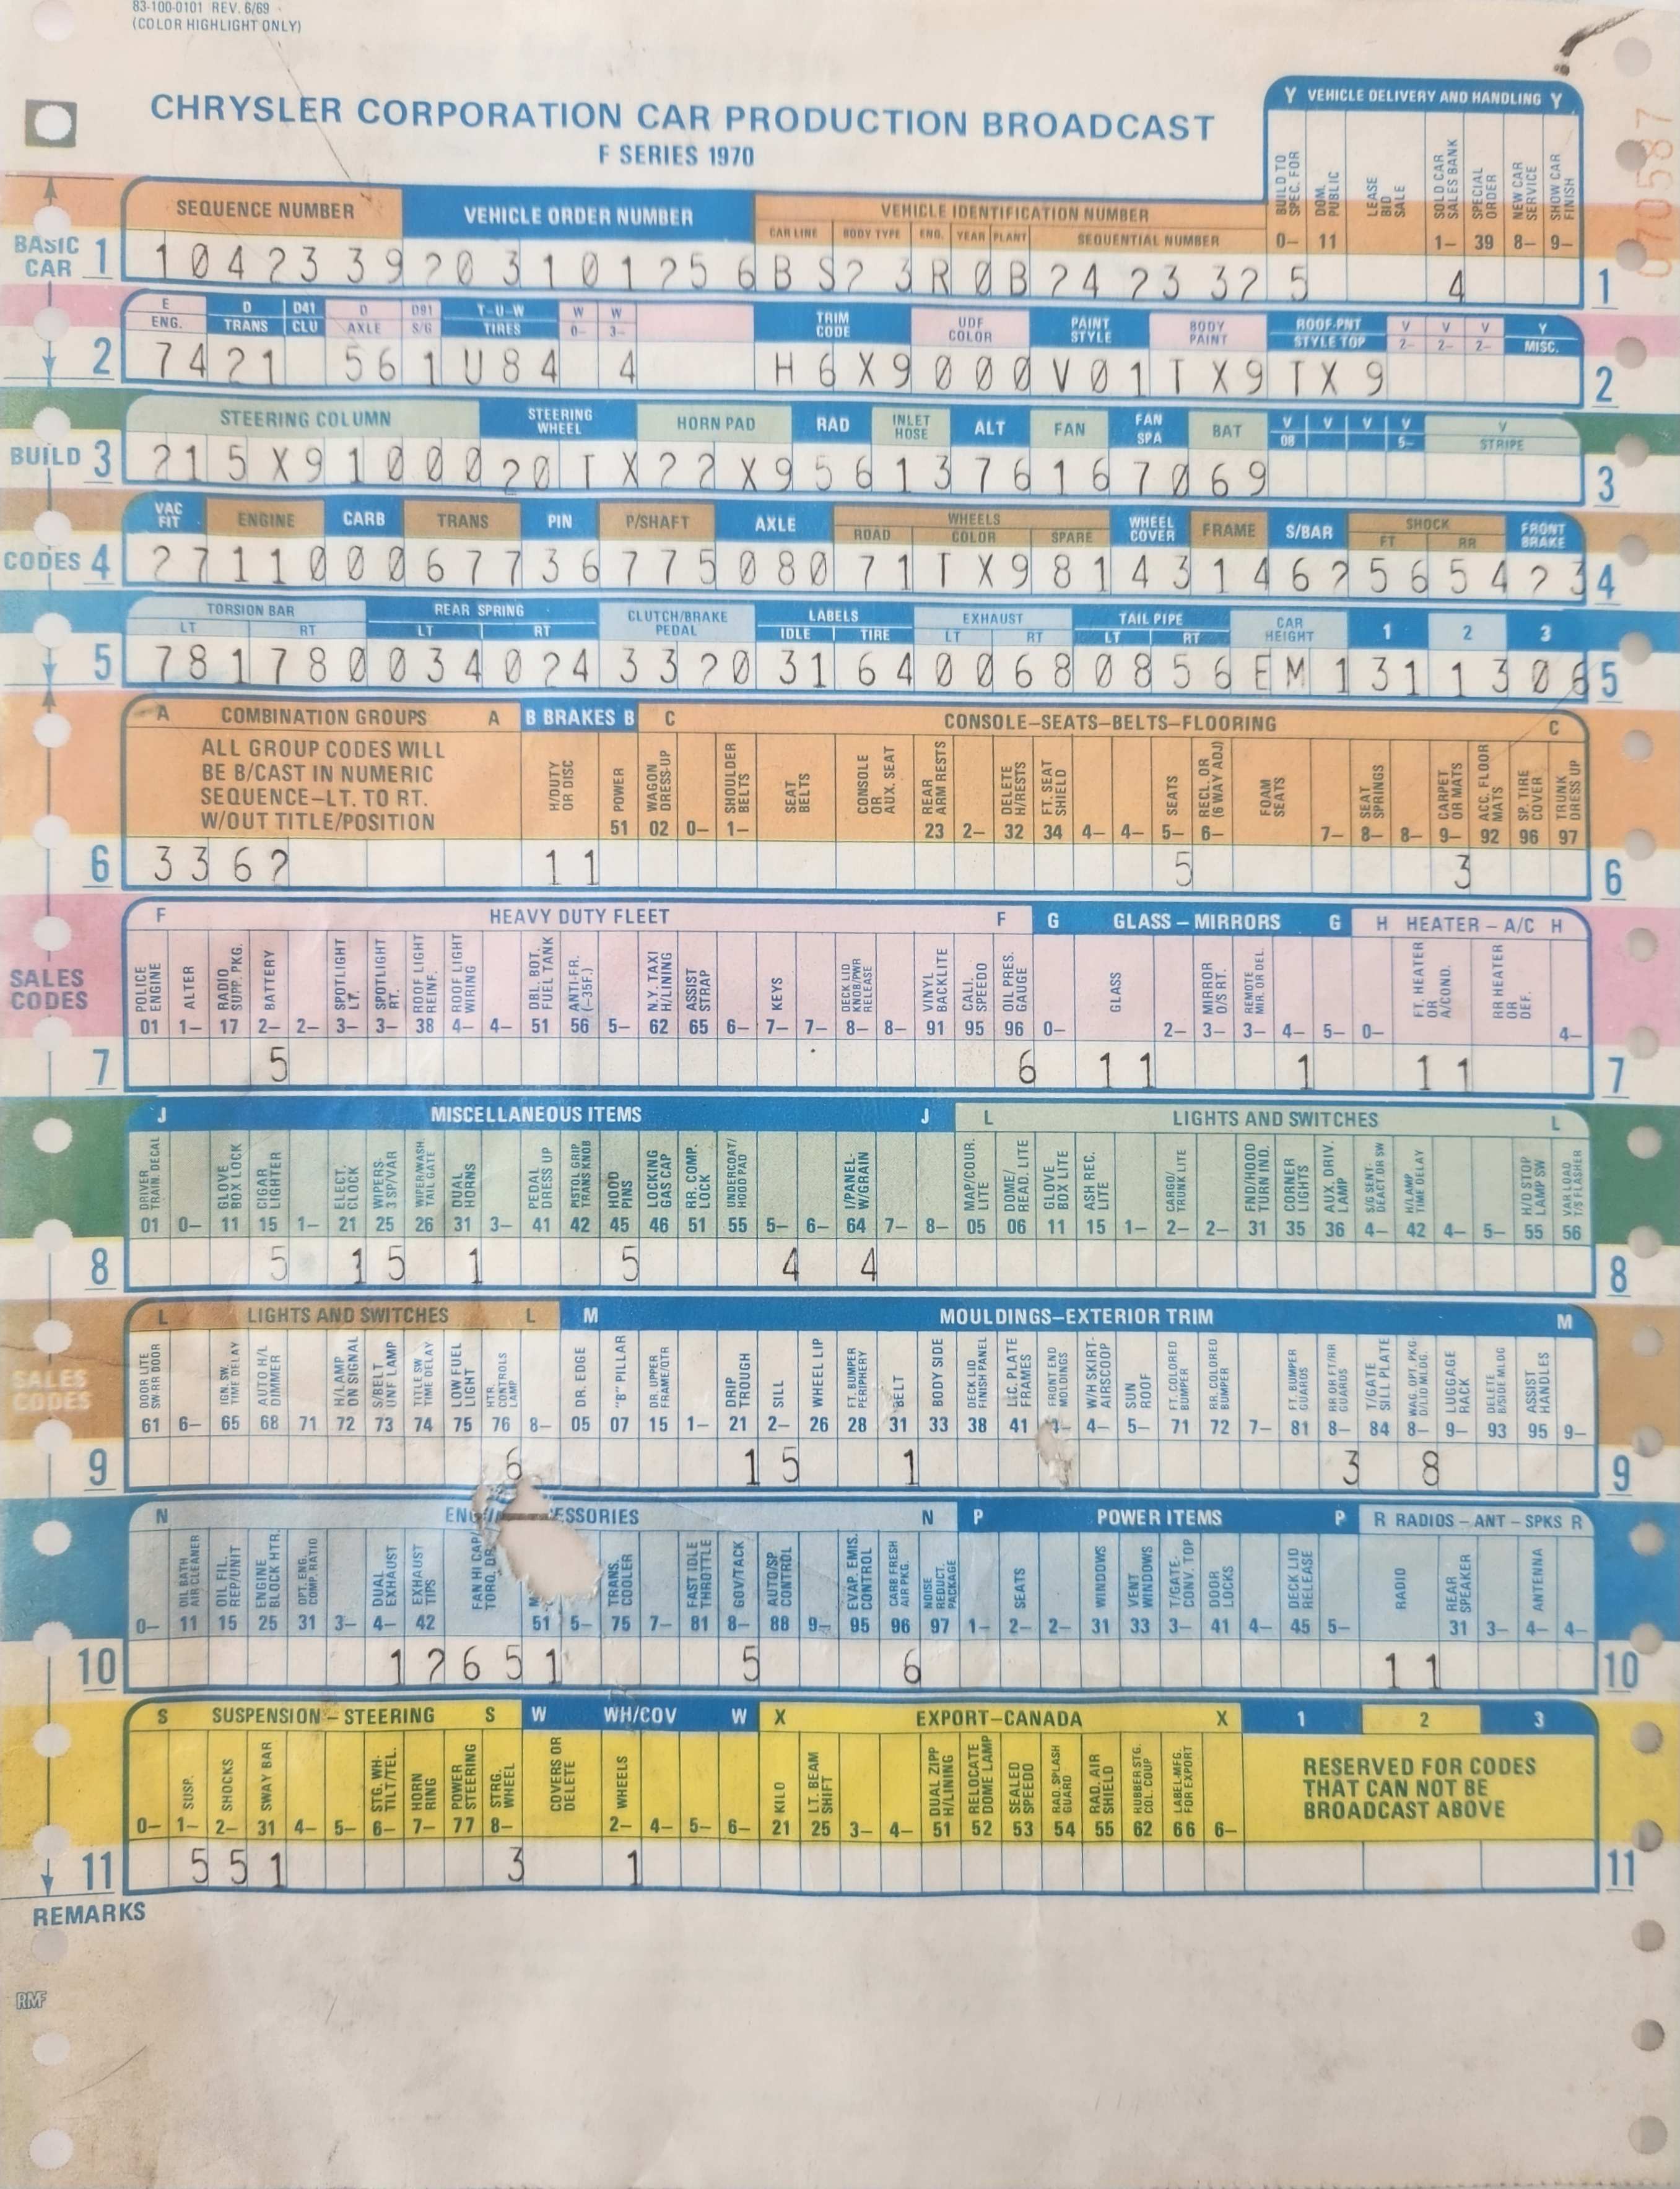 83-100-0101 REV. 6/69
(COLOR HIGHLIGHT ONLY)
CHRYSLER CORPORATION CAR PRODUCTION BROADCAST
F SERIES 1970
070587
Y VEHICLE DELIVERY AND HANDLING Y
BUILD TO SPEC. FOR DOM. PUBLIC LEASE BID SALE SOLD CAR SALES BANK SPECIAL ORDER NEW CAR SERVICE SHOW CAR FINISH
0– 11 1– 39 8– 9–
SEQUENCE NUMBER VEHICLE ORDER NUMBER VEHICLE IDENTIFICATION NUMBER
CAR LINE BODY TYPE ENG. YEAR PLANT SEQUENTIAL NUMBER
BASIC CAR 1
1042339 203101256 BS23R0B242332 5 4 1
E ENG. D TRANS D41 CLU D AXLE D91 S/G T–U–W TIRES W 0– W 3– TRIM CODE UDF COLOR PAINT STYLE BODY PAINT ROOF-PNT STYLE TOP V 2– V 2– V 2– Y MISC.
2 74 21 56 1 U84 4 H6X9 000 V01 TX9 TX9 2
STEERING COLUMN STEERING WHEEL HORN PAD RAD INLET HOSE ALT FAN FAN SPA BAT V 08 V V V 5– V STRIPE
BUILD 3 215X91000 20TX 22X9 56 13 76 16 70 69 3
VAC FIT ENGINE CARB TRANS PIN P/SHAFT AXLE WHEELS WHEEL COVER FRAME S/BAR SHOCK FRONT BRAKE
ROAD COLOR SPARE FT RR
CODES 4 27 110 00 677 36 775 080 71 TX9 81 43 14 62 56 54 23 4
TORSION BAR REAR SPRING CLUTCH/BRAKE PEDAL LABELS EXHAUST TAIL PIPE CAR HEIGHT 1 2 3
LT RT LT RT IDLE TIRE LT RT LT RT
5 781 780 034 024 3320 31 64 00 68 08 56 EM1 31 13 06 5
A COMBINATION GROUPS A B BRAKES B C CONSOLE–SEATS–BELTS–FLOORING C
ALL GROUP CODES WILL
BE B/CAST IN NUMERIC
SEQUENCE–LT. TO RT.
W/OUT TITLE/POSITION
H/DUTY OR DISC POWER WAGON DRESS-UP SHOULDER BELTS SEAT BELTS CONSOLE OR AUX. SEAT REAR ARM RESTS DELETE H/RESTS FT. SEAT SHIELD SEATS RECL. OR (6 WAY ADJ) FOAM SEATS SEAT SPRINGS CARPET OR MATS ACC. FLOOR MATS SP. TIRE COVER TRUNK DRESS UP
51 02 0– 1– 23 2– 32 34 4– 4– 5– 6– 7– 8– 8– 9– 92 96 97
6 3362 11 5 3 6
F HEAVY DUTY FLEET F G GLASS – MIRRORS G H HEATER – A/C H
POLICE ENGINE ALTER RADIO SUPP. PKG. BATTERY SPOTLIGHT LT. SPOTLIGHT RT. ROOF LIGHT REINF. ROOF LIGHT WIRING DBL. BOT. FUEL TANK ANTI-FR. (–35F.) N.Y. TAXI H/LINING ASSIST STRAP KEYS DECK LID KNOB/PWR RELEASE VINYL BACKLITE CALI. SPEEDO OIL PRES. GAUGE GLASS MIRROR O/S RT. REMOTE MIR. OR DEL. FT. HEATER OR A/COND. RR HEATER OR DEF.
01 1– 17 2– 2– 3– 3– 38 4– 4– 51 56 5– 62 65 6– 7– 7– 8– 8– 91 95 96 0– 2– 3– 3– 4– 5– 0– 4–
SALES CODES
7 5 6 11 1 11 7
J MISCELLANEOUS ITEMS J L LIGHTS AND SWITCHES L
DRIVER TRAIN. DECAL GLOVE BOX LOCK CIGAR LIGHTER ELECT. CLOCK WIPERS- 3 SP/VAR WIPER/WASH TAIL GATE DUAL HORNS PEDAL DRESS UP PISTOL GRIP TRANS KNOB HOOD PINS LOCKING GAS CAP RR. COMP. LOCK UNDERCOAT/ HOOD PAD I/PANEL- W/GRAIN MAP/COUR. LITE DOME/ READ. LITE GLOVE BOX LITE ASH REC. LITE CARGO/ TRUNK LITE FND/HOOD TURN IND. CORNER LIGHTS AUX. DRIV. LAMP S/G SENT- DEACT. OR SW H/LAMP TIME DELAY H/D STOP LAMP SW VAR LOAD T/S FLASHER
01 0– 11 15 1– 21 25 26 31 3– 41 42 45 46 51 55 5– 6– 64 7– 8– 05 06 11 15 1– 2– 2– 31 35 36 4– 42 4– 5– 55 56
8 5 1 5 1 5 4 4 8
L LIGHTS AND SWITCHES L M MOULDINGS–EXTERIOR TRIM M
DOOR LITE SW RR DOOR IGN. SW. TIME DELAY AUTO H/L DIMMER H/LAMP ON SIGNAL S/BELT UNF LAMP TITLE SW TIME DELAY LOW FUEL LIGHT HTR. CONTROLS LAMP DR. EDGE "B" PILLAR DR. UPPER FRAME/OTR DRIP TROUGH SILL WHEEL LIP FT. BUMPER PERIPHERY BELT BODY SIDE DECK LID FINISH PANEL LIC. PLATE FRAMES FRONT END MOLDINGS W/H SKIRT- AIRSCOOP SUN ROOF FT. COLORED BUMPER RR. COLORED BUMPER FT. BUMPER GUARDS RR OR FT/RR GUARDS T/GATE SILL PLATE WAG. OPT. PKG. D/LID MLDG. LUGGAGE RACK DELETE B/SIDE MLDG ASSIST HANDLES
61 6– 65 68 71 72 73 74 75 76 8– 05 07 15 1– 21 2– 26 28 31 33 38 41 4– 5– 71 72 7– 81 8– 84 8– 9– 93 95 9–
SALES CODES
9 6 1 5 1 3 8 9
N ENG ESSORIES N P POWER ITEMS P R RADIOS – ANT – SPKS R
OIL BATH AIR CLEANER OIL FIL. REP/UNIT ENGINE BLOCK HTR. OPT. ENG. COMP. RATIO DUAL EXHAUST EXHAUST TIPS FAN HI CAP/ TORQ. DR TRANS. COOLER FAST IDLE THROTTLE GOV/TACK AUTO/SP CONTROL EVAP. EMIS. CONTROL CARB FRESH AIR PKG. NOISE REDUCT. PACKAGE SEATS WINDOWS VENT WINDOWS T/GATE- CONV. TOP DOOR LOCKS DECK LID RELEASE RADIO REAR SPEAKER ANTENNA
0– 11 15 25 31 3– 4– 42 51 5– 75 7– 81 8– 88 9– 95 96 97 1– 2– 2– 31 33 3– 41 4– 45 5– 31 3– 4– 4–
10 1 2 6 5 1 5 6 11 10
S SUSPENSION – STEERING S W WH/COV W X EXPORT–CANADA X 1 2 3
SUSP. SHOCKS SWAY BAR STG. WH- TILT/TEL. HORN RING POWER STEERING STRG. WHEEL COVERS OR DELETE WHEELS KILO LT. BEAM SHIFT DUAL ZIPP H/LINING RELOCATE DOME LAMP SEALED SPEEDO RAD. SPLASH GUARD RAD. AIR SHIELD RUBBER STG. COL. COUP LABEL-MFG. FOR EXPORT
RESERVED FOR CODES
THAT CAN NOT BE
BROADCAST ABOVE
0– 1– 2– 31 4– 5– 6– 7– 77 8– 2– 4– 5– 6– 21 25 3– 4– 51 52 53 54 55 62 66 6–
11 5 5 1 3 1 11
REMARKS
RMF